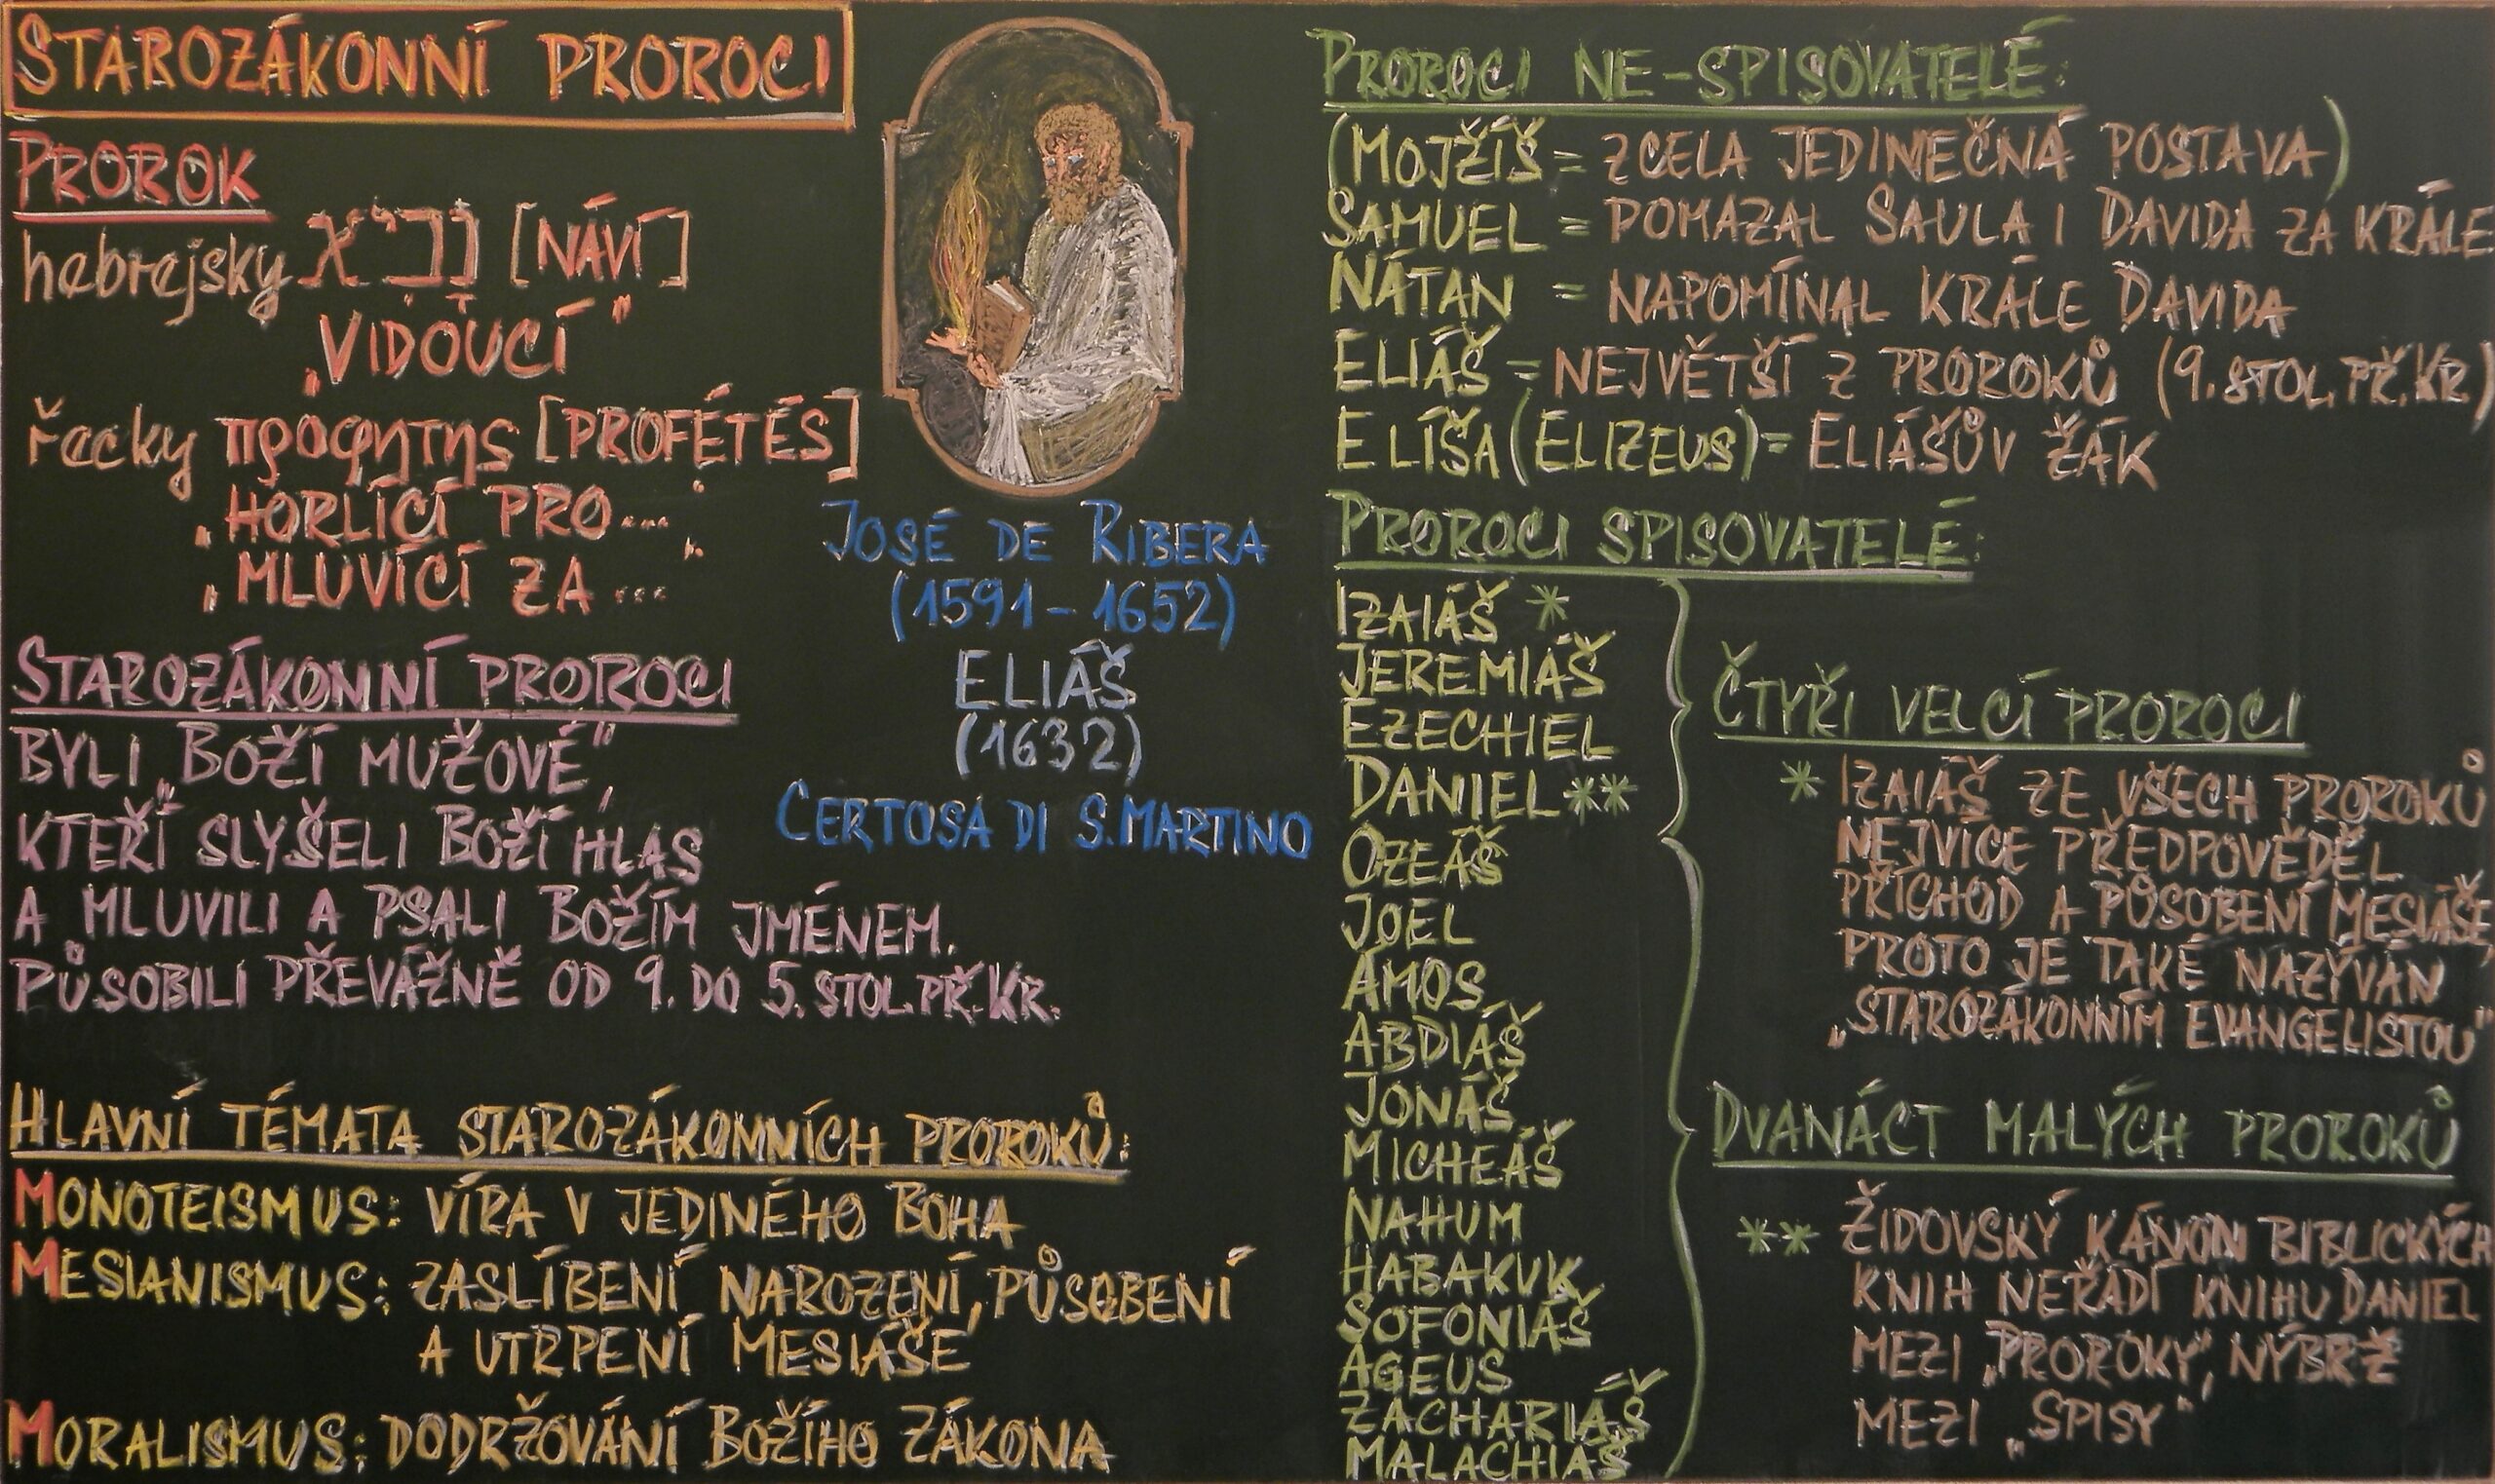 STAROZÁKONNÍ PROROCI
PROROK
hebrejsky נָבִיא [NÁVÍ]
„VIDOUCÍ"
řecky προφητης [PROFÉTÉS]
„HORLÍCÍ PRO..."
„MLUVÍCÍ ZA..."
STAROZÁKONNÍ PROROCI
BYLI „BOŽÍ MUŽOVÉ",
KTEŘÍ SLYŠELI BOŽÍ HLAS
A MLUVILI A PSALI BOŽÍM JMÉNEM.
PŮSOBILI PŘEVÁŽNĚ OD 9. DO 5. STOL. PŘ. KR.
HLAVNÍ TÉMATA STAROZÁKONNÍCH PROROKŮ:
MONOTEISMUS: VÍRA V JEDINÉHO BOHA
MESIANISMUS: ZASLÍBENÍ NAROZENÍ, PŮSOBENÍ
A UTRPENÍ MESIÁŠE
MORALISMUS: DODRŽOVÁNÍ BOŽÍHO ZÁKONA
JOSÉ DE RIBERA
(1591-1652)
ELIÁŠ
(1632)
CERTOSA DI S. MARTINO
PROROCI NE-SPISOVATELÉ:
(MOJŽÍŠ = ZCELA JEDINEČNÁ POSTAVA)
SAMUEL = POMAZAL SAULA I DAVIDA ZA KRÁLE
NÁTAN = NAPOMÍNAL KRÁLE DAVIDA
ELIÁŠ = NEJVĚTŠÍ Z PROROKŮ (9. STOL. PŘ. KR.)
ELÍŠA (ELIZEUS) = ELIÁŠŮV ŽÁK
PROROCI SPISOVATELÉ:
IZAIÁŠ *
JEREMIÁŠ
EZECHIEL
DANIEL **
OZEÁŠ
JOEL
ÁMOS
ABDIÁŠ
JONÁŠ
MICHEÁŠ
NAHUM
HABAKUK
SOFONIÁŠ
AGEUS
ZACHARIÁŠ
MALACHIÁŠ
ČTYŘI VELCÍ PROROCI
* IZAIÁŠ ZE VŠECH PROROKŮ
NEJVÍCE PŘEDPOVĚDĚL
PŘÍCHOD A PŮSOBENÍ MESIÁŠE,
PROTO JE TAKÉ NAZÝVÁN
„STAROZÁKONNÍM EVANGELISTOU"
DVANÁCT MALÝCH PROROKŮ
** ŽIDOVSKÝ KÁNON BIBLICKÝCH
KNIH NEŘADÍ KNIHU DANIEL
MEZI „PROROKY", NÝBRŽ
MEZI „SPISY"